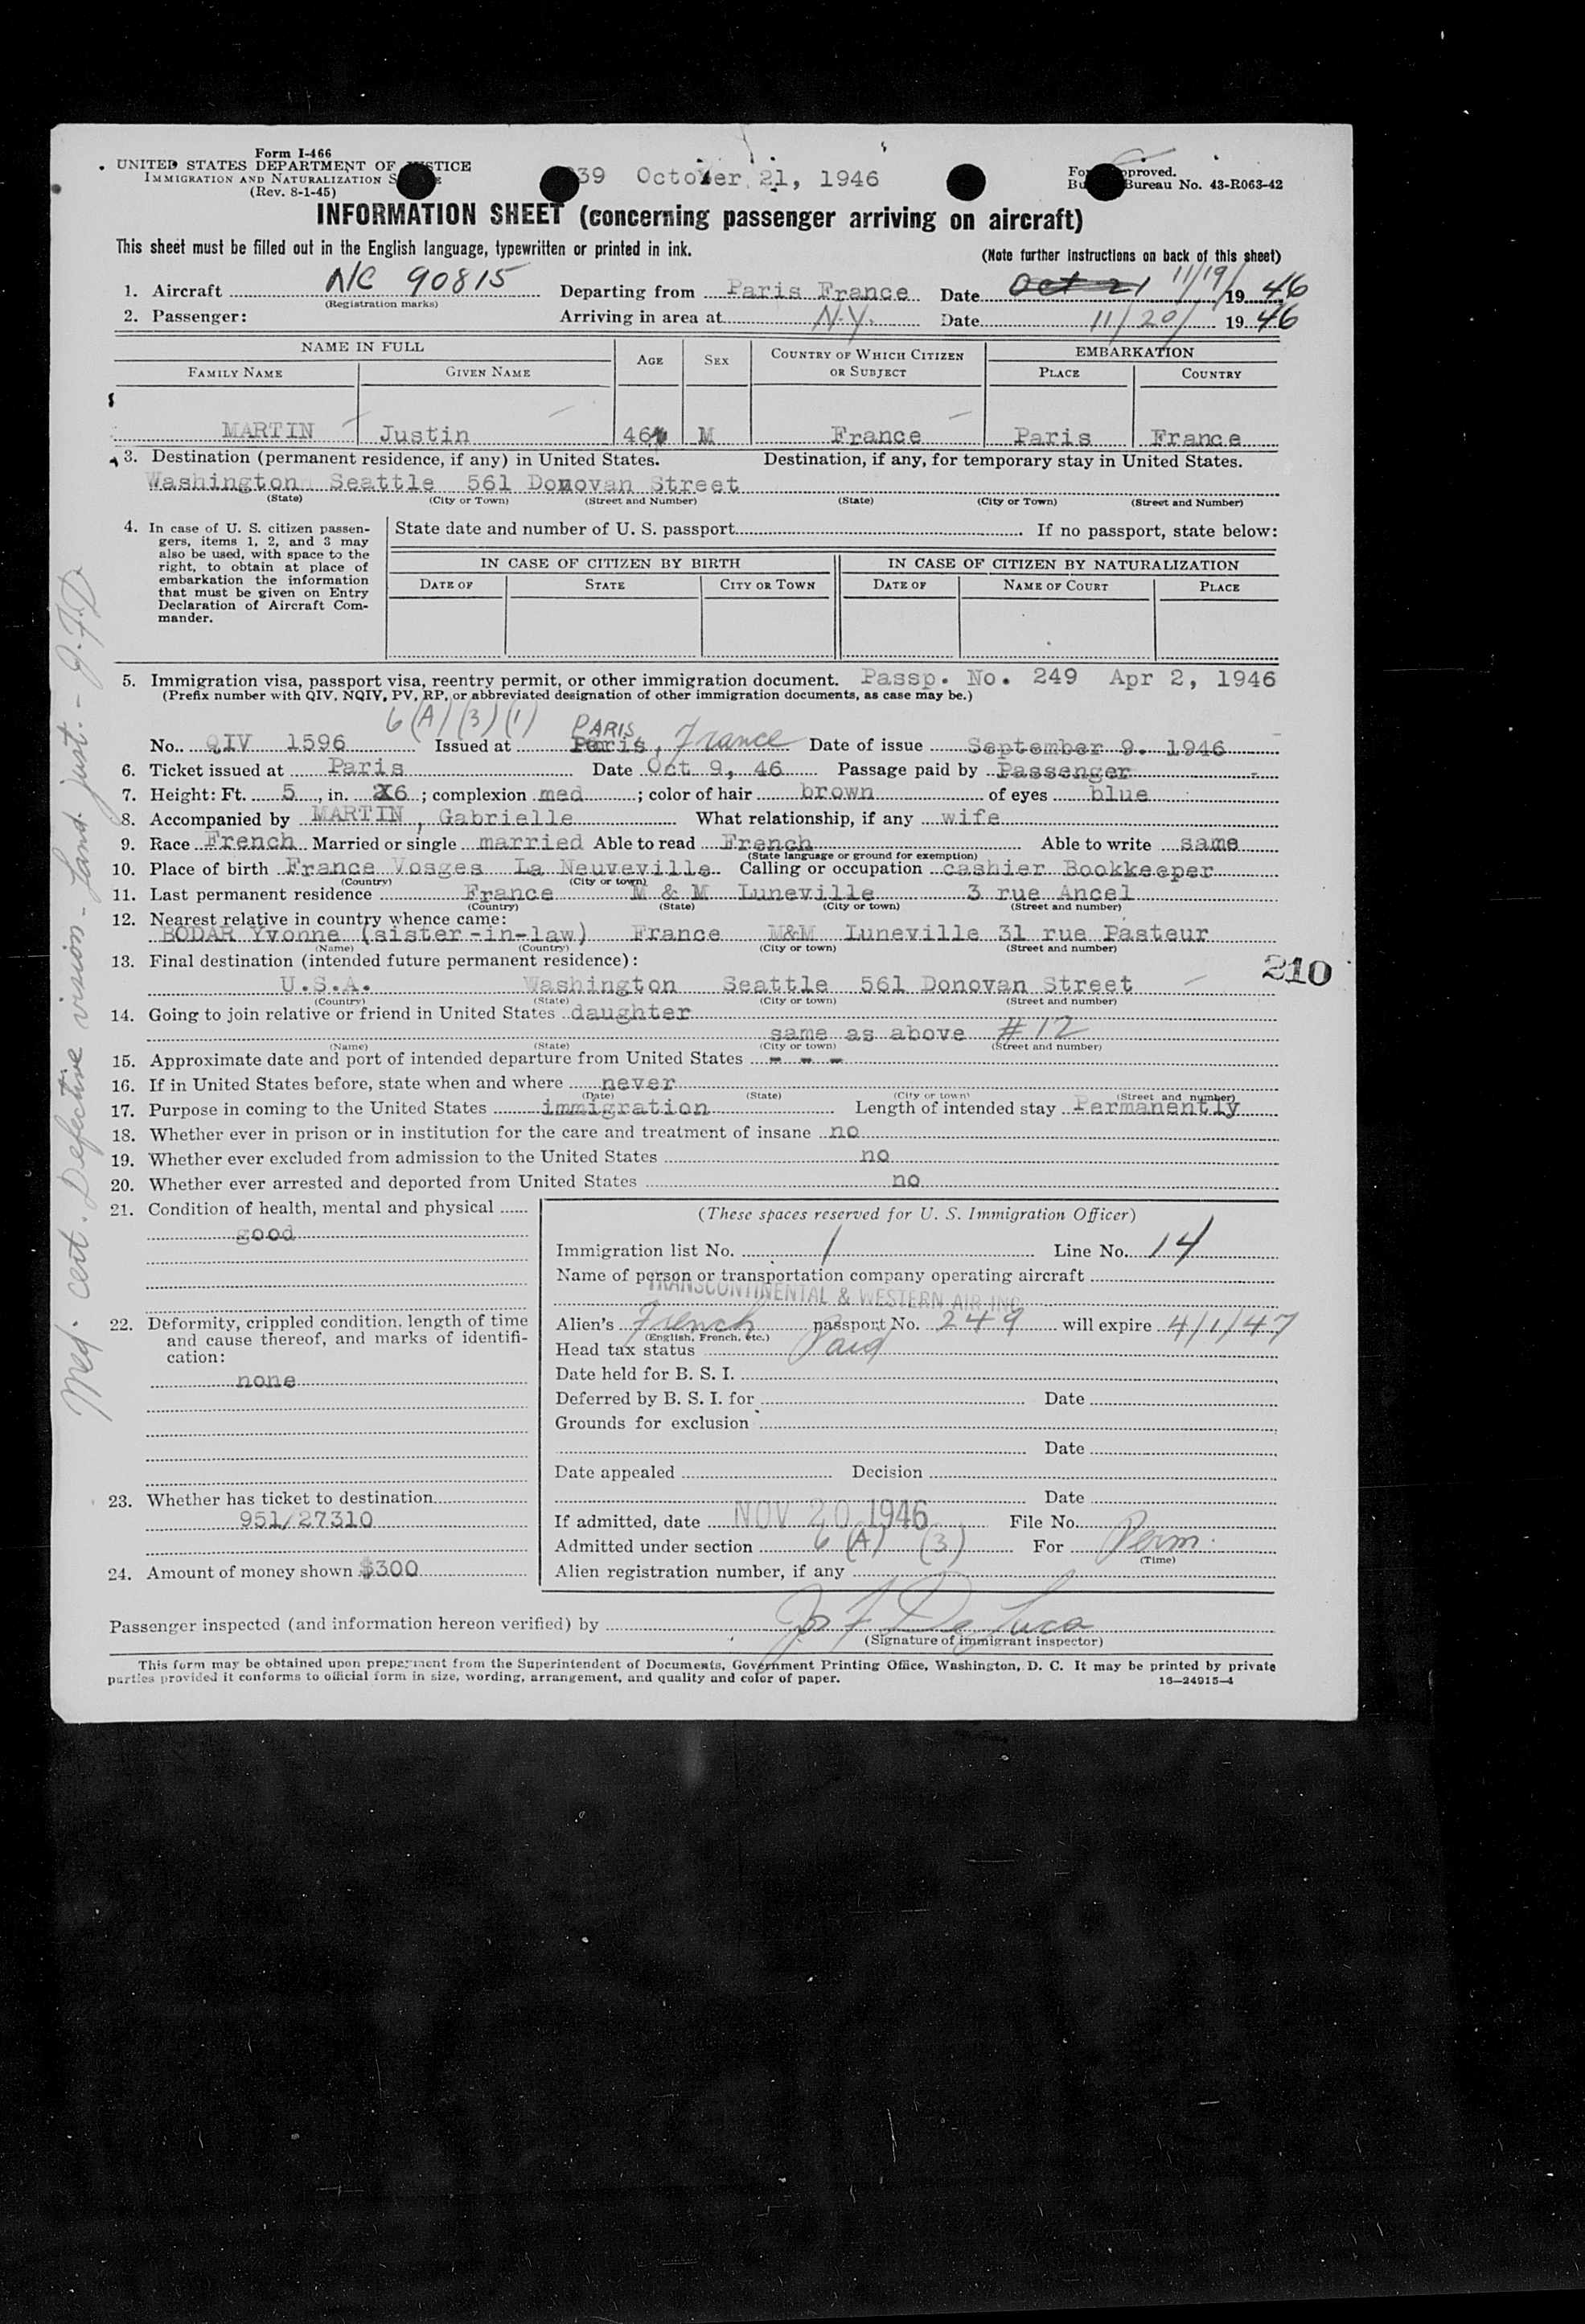 Form I-466
UNITED STATES DEPARTMENT OF STICE
IMMIGRATION AND NATURALIZATION S
(Rev. 8-1-45)
39 October 21, 1946
For pproved.
Bu Bureau No. 43-R063-42
INFORMATION SHEET (concerning passenger arriving on aircraft)
This sheet must be filled out in the English language, typewritten or printed in ink.
(Note further instructions on back of this sheet)
1. Aircraft NC 90815 Departing from Paris France Date Oct 21 11/19/ 19 46
(Registration marks)
2. Passenger: Arriving in area at N.Y. Date 11/20/ 19 46
NAME IN FULL AGE SEX COUNTRY OF WHICH CITIZEN OR SUBJECT EMBARKATION
FAMILY NAME GIVEN NAME PLACE COUNTRY
MARTIN Justin 46 M France Paris France
3. Destination (permanent residence, if any) in United States. Destination, if any, for temporary stay in United States.
Washington Seattle 561 Donovan Street
(State) (City or Town) (Street and Number) (State) (City or Town) (Street and Number)
4. In case of U. S. citizen passengers, items 1, 2, and 3 may also be used, with space to the right, to obtain at place of embarkation the information that must be given on Entry Declaration of Aircraft Commander.
State date and number of U. S. passport If no passport, state below:
IN CASE OF CITIZEN BY BIRTH IN CASE OF CITIZEN BY NATURALIZATION
DATE OF STATE CITY OR TOWN DATE OF NAME OF COURT PLACE
5. Immigration visa, passport visa, reentry permit, or other immigration document. Passp. No. 249 Apr 2, 1946
(Prefix number with QIV, NQIV, PV, RP, or abbreviated designation of other immigration documents, as case may be.)
6(A)(3)(1) PARIS
No. QIV 1596 Issued at Paris, France Date of issue September 9. 1946
6. Ticket issued at Paris Date Oct 9, 46 Passage paid by Passenger
7. Height: Ft. 5, in. 6; complexion med; color of hair brown of eyes blue
8. Accompanied by MARTIN, Gabrielle What relationship, if any wife
9. Race French Married or single married Able to read French Able to write same
(State language or ground for exemption)
10. Place of birth France Vosges La Neuveville Calling or occupation cashier Bookkeeper
(Country) (City or town)
11. Last permanent residence France M & M Luneville 3 rue Ancel
(Country) (State) (City or town) (Street and number)
12. Nearest relative in country whence came:
BODAR Yvonne (sister-in-law) France M&M Luneville 31 rue Pasteur
(Name) (Country) (City or town) (Street and number)
13. Final destination (intended future permanent residence):
210
U.S.A. Washington Seattle 561 Donovan Street
(Country) (State) (City or town) (Street and number)
14. Going to join relative or friend in United States daughter
same as above #12
(Name) (State) (City or town) (Street and number)
15. Approximate date and port of intended departure from United States - - -
16. If in United States before, state when and where never
(Date) (State) (City or town) (Street and number)
17. Purpose in coming to the United States immigration Length of intended stay Permanently
18. Whether ever in prison or in institution for the care and treatment of insane no
19. Whether ever excluded from admission to the United States no
20. Whether ever arrested and deported from United States no
21. Condition of health, mental and physical
good
22. Deformity, crippled condition, length of time and cause thereof, and marks of identification:
none
23. Whether has ticket to destination
951/27310
24. Amount of money shown $300
(These spaces reserved for U. S. Immigration Officer)
Immigration list No. 1 Line No. 14
Name of person or transportation company operating aircraft
TRANSCONTINENTAL & WESTERN AIR, INC.
Alien's French passport No. 249 will expire 4/1/47
(English, French, etc.)
Head tax status Paid
Date held for B. S. I.
Deferred by B. S. I. for Date
Grounds for exclusion
Date
Date appealed Decision
Date
If admitted, date NOV 20 1946 File No.
Admitted under section 6(A) (3) For Perm.
(Time)
Alien registration number, if any
Passenger inspected (and information hereon verified) by Jos F De Luca
(Signature of immigrant inspector)
This form may be obtained upon prepayment from the Superintendent of Documents, Government Printing Office, Washington, D. C. It may be printed by private
parties provided it conforms to official form in size, wording, arrangement, and quality and color of paper.
16—24915-4
Med. cert. Defective vision - Land. just. - J.F.D.